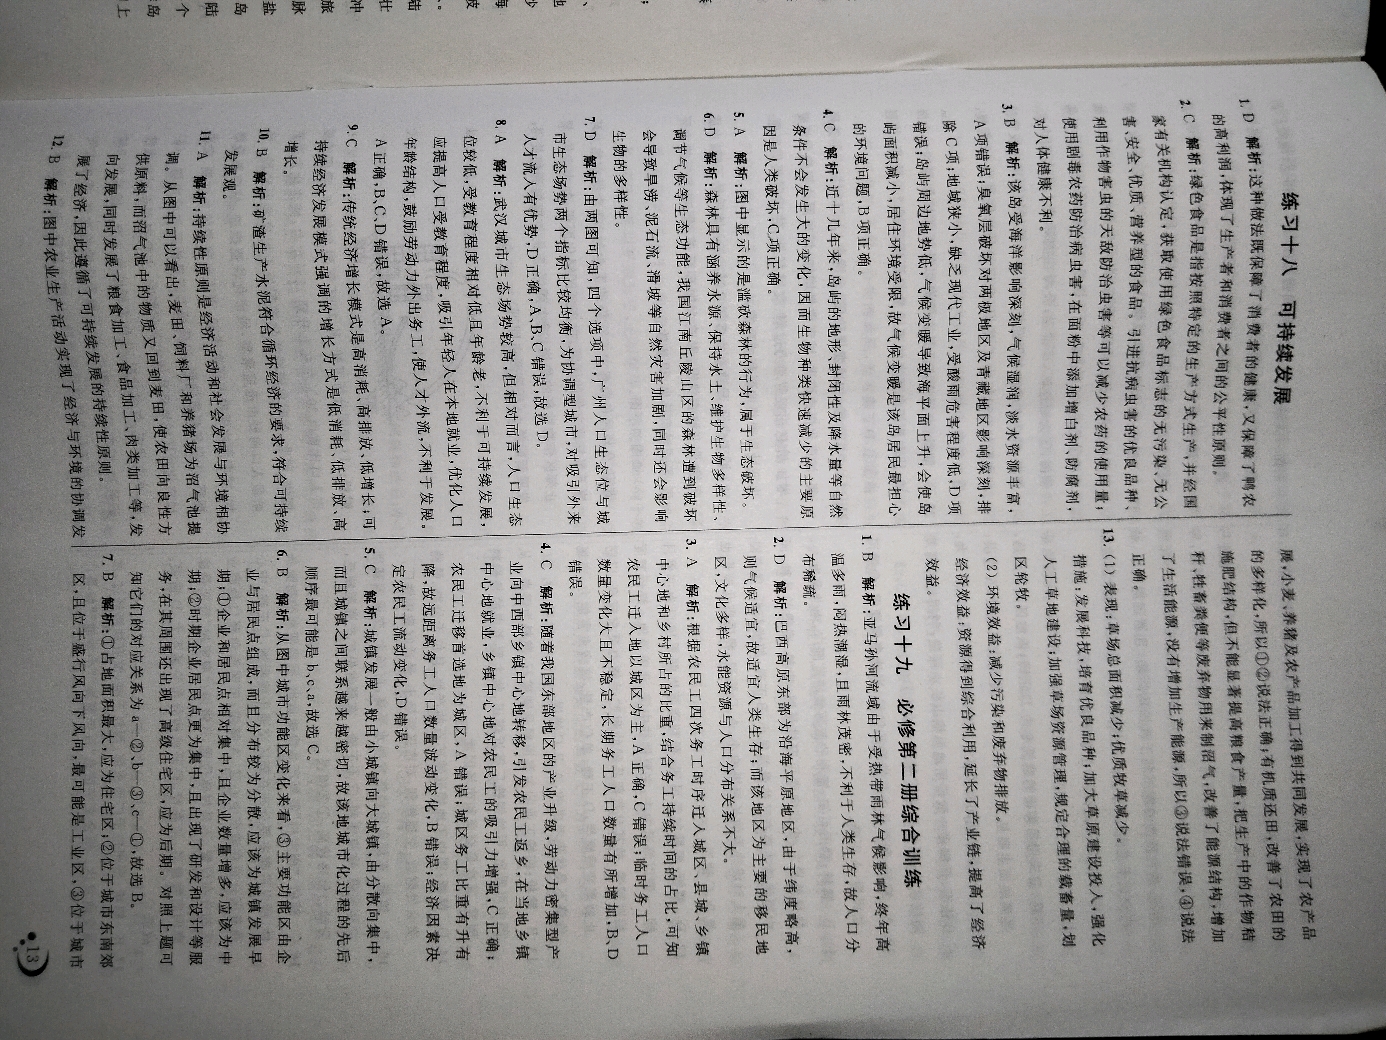 练习十八 可持续发展
1. D 解析:这种做法既保障了消费者的健康,又保障了鸭农
的高利润,体现了生产者和消费者之间的公平性原则。
2. C 解析:绿色食品是指按照特定的生产方式生产,并经国
家有关机构认定,获取使用绿色食品标志的无污染、无公
害、安全、优质、营养型的食品。引进抗病虫害的优良品种、
利用作物害虫的天敌防治虫害等可以减少农药的使用量;
使用剧毒农药防治病虫害,在面粉中添加增白剂、防腐剂,
对人体健康不利。
3. B 解析:该岛受海洋影响深刻,气候湿润,淡水资源丰富,
A项错误;臭氧层破坏对两极地区及青藏地区影响深刻,排
除C项;地域狭小,缺乏现代工业,受酸雨危害程度低,D项
错误;岛屿周边地势低,气候变暖导致海平面上升,会使岛
屿面积减小,居住环境受限,故气候变暖是该岛居民最担心
的环境问题,B项正确。
4. C 解析:近十几年来,岛屿的地形、封闭性及降水量等自然
条件不会发生大的变化,因而生物种类快速减少的主要原
因是人类破坏,C项正确。
5. A 解析:图中显示的是滥砍森林的行为,属于生态破坏。
6. D 解析:森林具有涵养水源、保持水土、维护生物多样性、
调节气候等生态功能,我国江南丘陵山区的森林遭到破坏
会导致旱涝、泥石流、滑坡等自然灾害加剧,同时还会影响
生物的多样性。
7. D 解析:由两图可知,四个选项中,广州人口生态位与城
市生态场势两个指标比较均衡,为协调型城市,对吸引外来
人才流入有优势,D正确,A、B、C错误,故选D。
8. A 解析:武汉城市生态场势较高,但相对而言,人口生态
位较低,受教育程度相对低且年龄老,不利于可持续发展,
应提高人口受教育程度,吸引年轻人在本地就业,优化人口
年龄结构,鼓励劳动力外出务工,使人才外流,不利于发展。
A正确,B、C、D错误,故选A。
9. C 解析:传统经济增长模式是高消耗、高排放、低增长;可
持续经济发展模式强调的增长方式是低消耗、低排放、高
增长。
10. B 解析:矿渣生产水泥符合循环经济的要求,符合可持续
发展观。
11. A 解析:持续性原则是经济活动和社会发展与环境相协
调。从图中可以看出,麦田、饲料厂和养猪场为沼气池提
供原料,而沼气池中的物质又回到麦田,使农田向良性方
向发展,同时发展了粮食加工、食品加工、肉类加工等,发
展了经济,因此遵循了可持续发展的持续性原则。
12. B 解析:图中农业生产活动实现了经济与环境的协调发
展,小麦、养猪及农产品加工得到共同发展,实现了农产品
的多样化,所以①②说法正确;有机质还田,改善了农田的
施肥结构,但不能显著提高粮食产量,把生产中的作物秸
秆、牲畜粪便等废弃物用来制沼气,改善了能源结构,增加
了生活能源,没有增加生产能源,所以③说法错误,④说法
正确。
13. (1)表现:草场总面积减少;优质牧草减少。
措施:发展科技,培育优良品种;加大草原建设投入,强化
人工草地建设;加强草场资源管理,规定合理的载畜量,划
区轮牧。
(2)环境效益:减少污染和废弃物排放。
经济效益:资源得到综合利用,延长了产业链,提高了经济
效益。
练习十九 必修第二册综合训练
1. B 解析:亚马孙河流域由于受热带雨林气候影响,终年高
温多雨,闷热潮湿,且雨林茂密,不利于人类生存,故人口分
布稀疏。
2. D 解析:巴西高原东部为沿海平原地区,由于纬度略高,
则气候适宜,故适宜人类生存;而该地区为主要的移民地
区,文化多样,水能资源与人口分布关系不大。
3. A 解析:根据农民工四次务工时序迁入城区、县城、乡镇
中心地和乡村所占的比重,结合务工持续时间的占比,可知
农民工迁入地以城区为主,A正确,C错误;临时务工人口
数量变化大且不稳定,长期务工人口数量有所增加,B、D
错误。
4. C 解析:随着我国东部地区的产业升级,劳动力密集型产
业向中西部乡镇中心地转移,引发农民工返乡,在当地乡镇
中心地就业,乡镇中心地对农民工的吸引力增强,C正确;
农民工迁移首选地为城区,A错误;城区务工比重有升有
降,故远距离务工人口数量波动变化,B错误;经济因素决
定农民工流动变化,D错误。
5. C 解析:城镇发展一般由小城镇向大城镇,由分散向集中,
而且城镇之间联系越来越密切,故该地城市化过程的先后
顺序最可能是b、c、a,故选C。
6. B 解析:从图中城市功能区变化来看,③主要功能区由企
业与居民点组成,而且分布较为分散,应该为城镇发展早
期;①企业和居民点相对集中,且企业数量增多,应该为中
期;②时期企业居民点更为集中,且出现了研发和设计等服
务,在其周围还出现了高级住宅区,应为后期。对照上题可
知它们的对应关系为a—②、b—③、c—①,故选B。
7. B 解析:①占地面积最大,应为住宅区,②位于城市东南郊
区,且位于盛行风向下风向,最可能是工业区,③位于城市
13